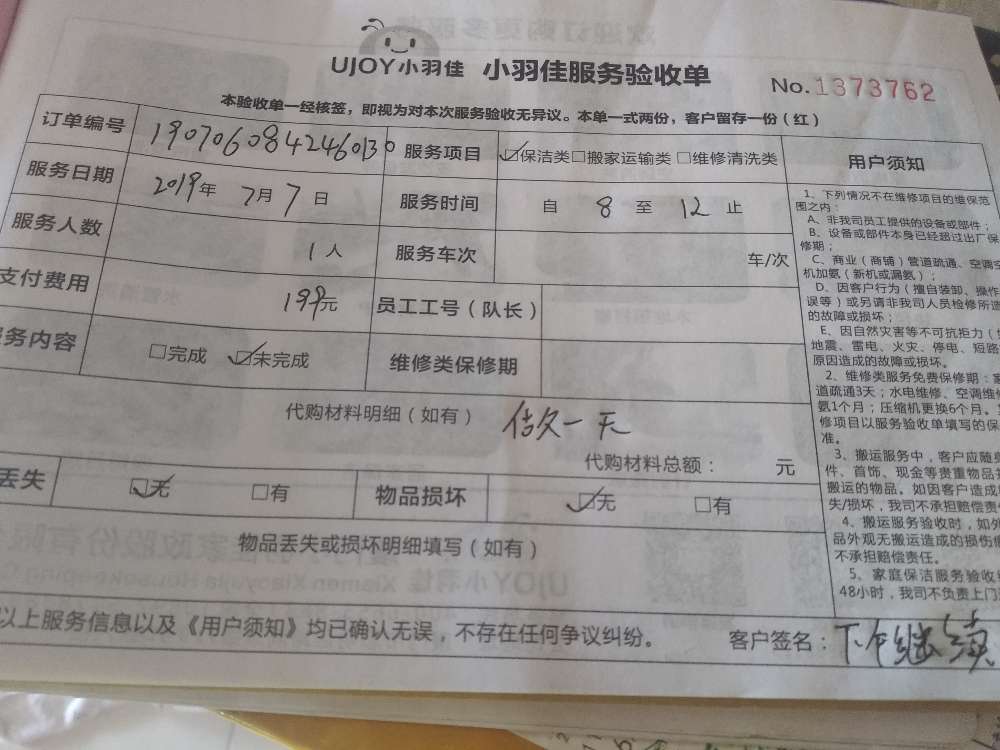 UJOY小羽佳 小羽佳服务验收单 No.1373762
本验收单一经核签，即视为对本次服务验收无异议。本单一式两份，客户留存一份（红）
订单编号 19070608424460130 服务项目 ☑保洁类□搬家运输类 □维修清洗类
服务日期 2019年 7月 7日 服务时间 自 8 至 12 止
服务人数 1人 服务车次 车/次
支付费用 199元 员工工号（队长）
服务内容 □完成 ☑未完成 维修类保修期
代购材料明细（如有） 一天
代购材料总额： 元
丢失 ☑无 □有 物品损坏 ☑无 □有
物品丢失或损坏明细填写（如有）
以上服务信息以及《用户须知》均已确认无误，不存在任何争议纠纷。 客户签名：下午继续
用户须知
1、下列情况不在维修项目的维保范
围之内：
A、非我司员工提供的设备或部件；
B、设备或部件本身已经超过出厂保
修期；
C、商业（商铺）管道疏通、空调
机加氨（新机或漏氨）；
D、因客户行为（擅自装卸、操作
误等）或另请非我司人员检修所造
的故障或损坏；
E、因自然灾害等不可抗拒力（
地震、雷电、火灾、停电、短路
原因造成的故障或损坏。
2、维修类服务免费保修期：
道疏通3天；水电维修、空调维
氨1个月；压缩机更换6个月。
修项目以服务验收单填写的保
准。
3、搬运服务中，客户应随身
件、首饰、现金等贵重物品
搬运的物品。如因客户造成
失/损坏，我司不承担赔偿责
4、搬运服务验收时，如外
品外观无搬运造成的损伤
不承担赔偿责任。
5、家庭保洁服务验收
48小时，我司不负责上门